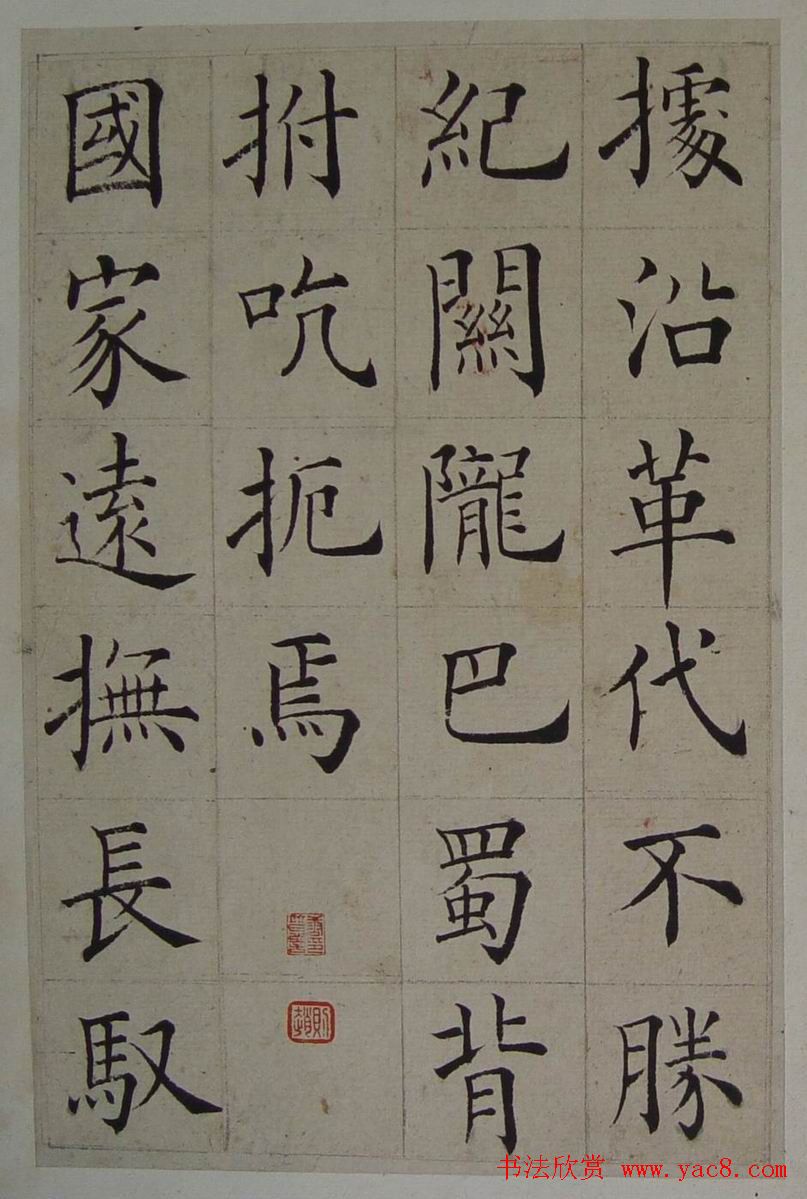 據沿革代不勝
紀關隴巴蜀背
拊吭扼焉
國家遠撫長馭
书法欣赏 www.yac8.com